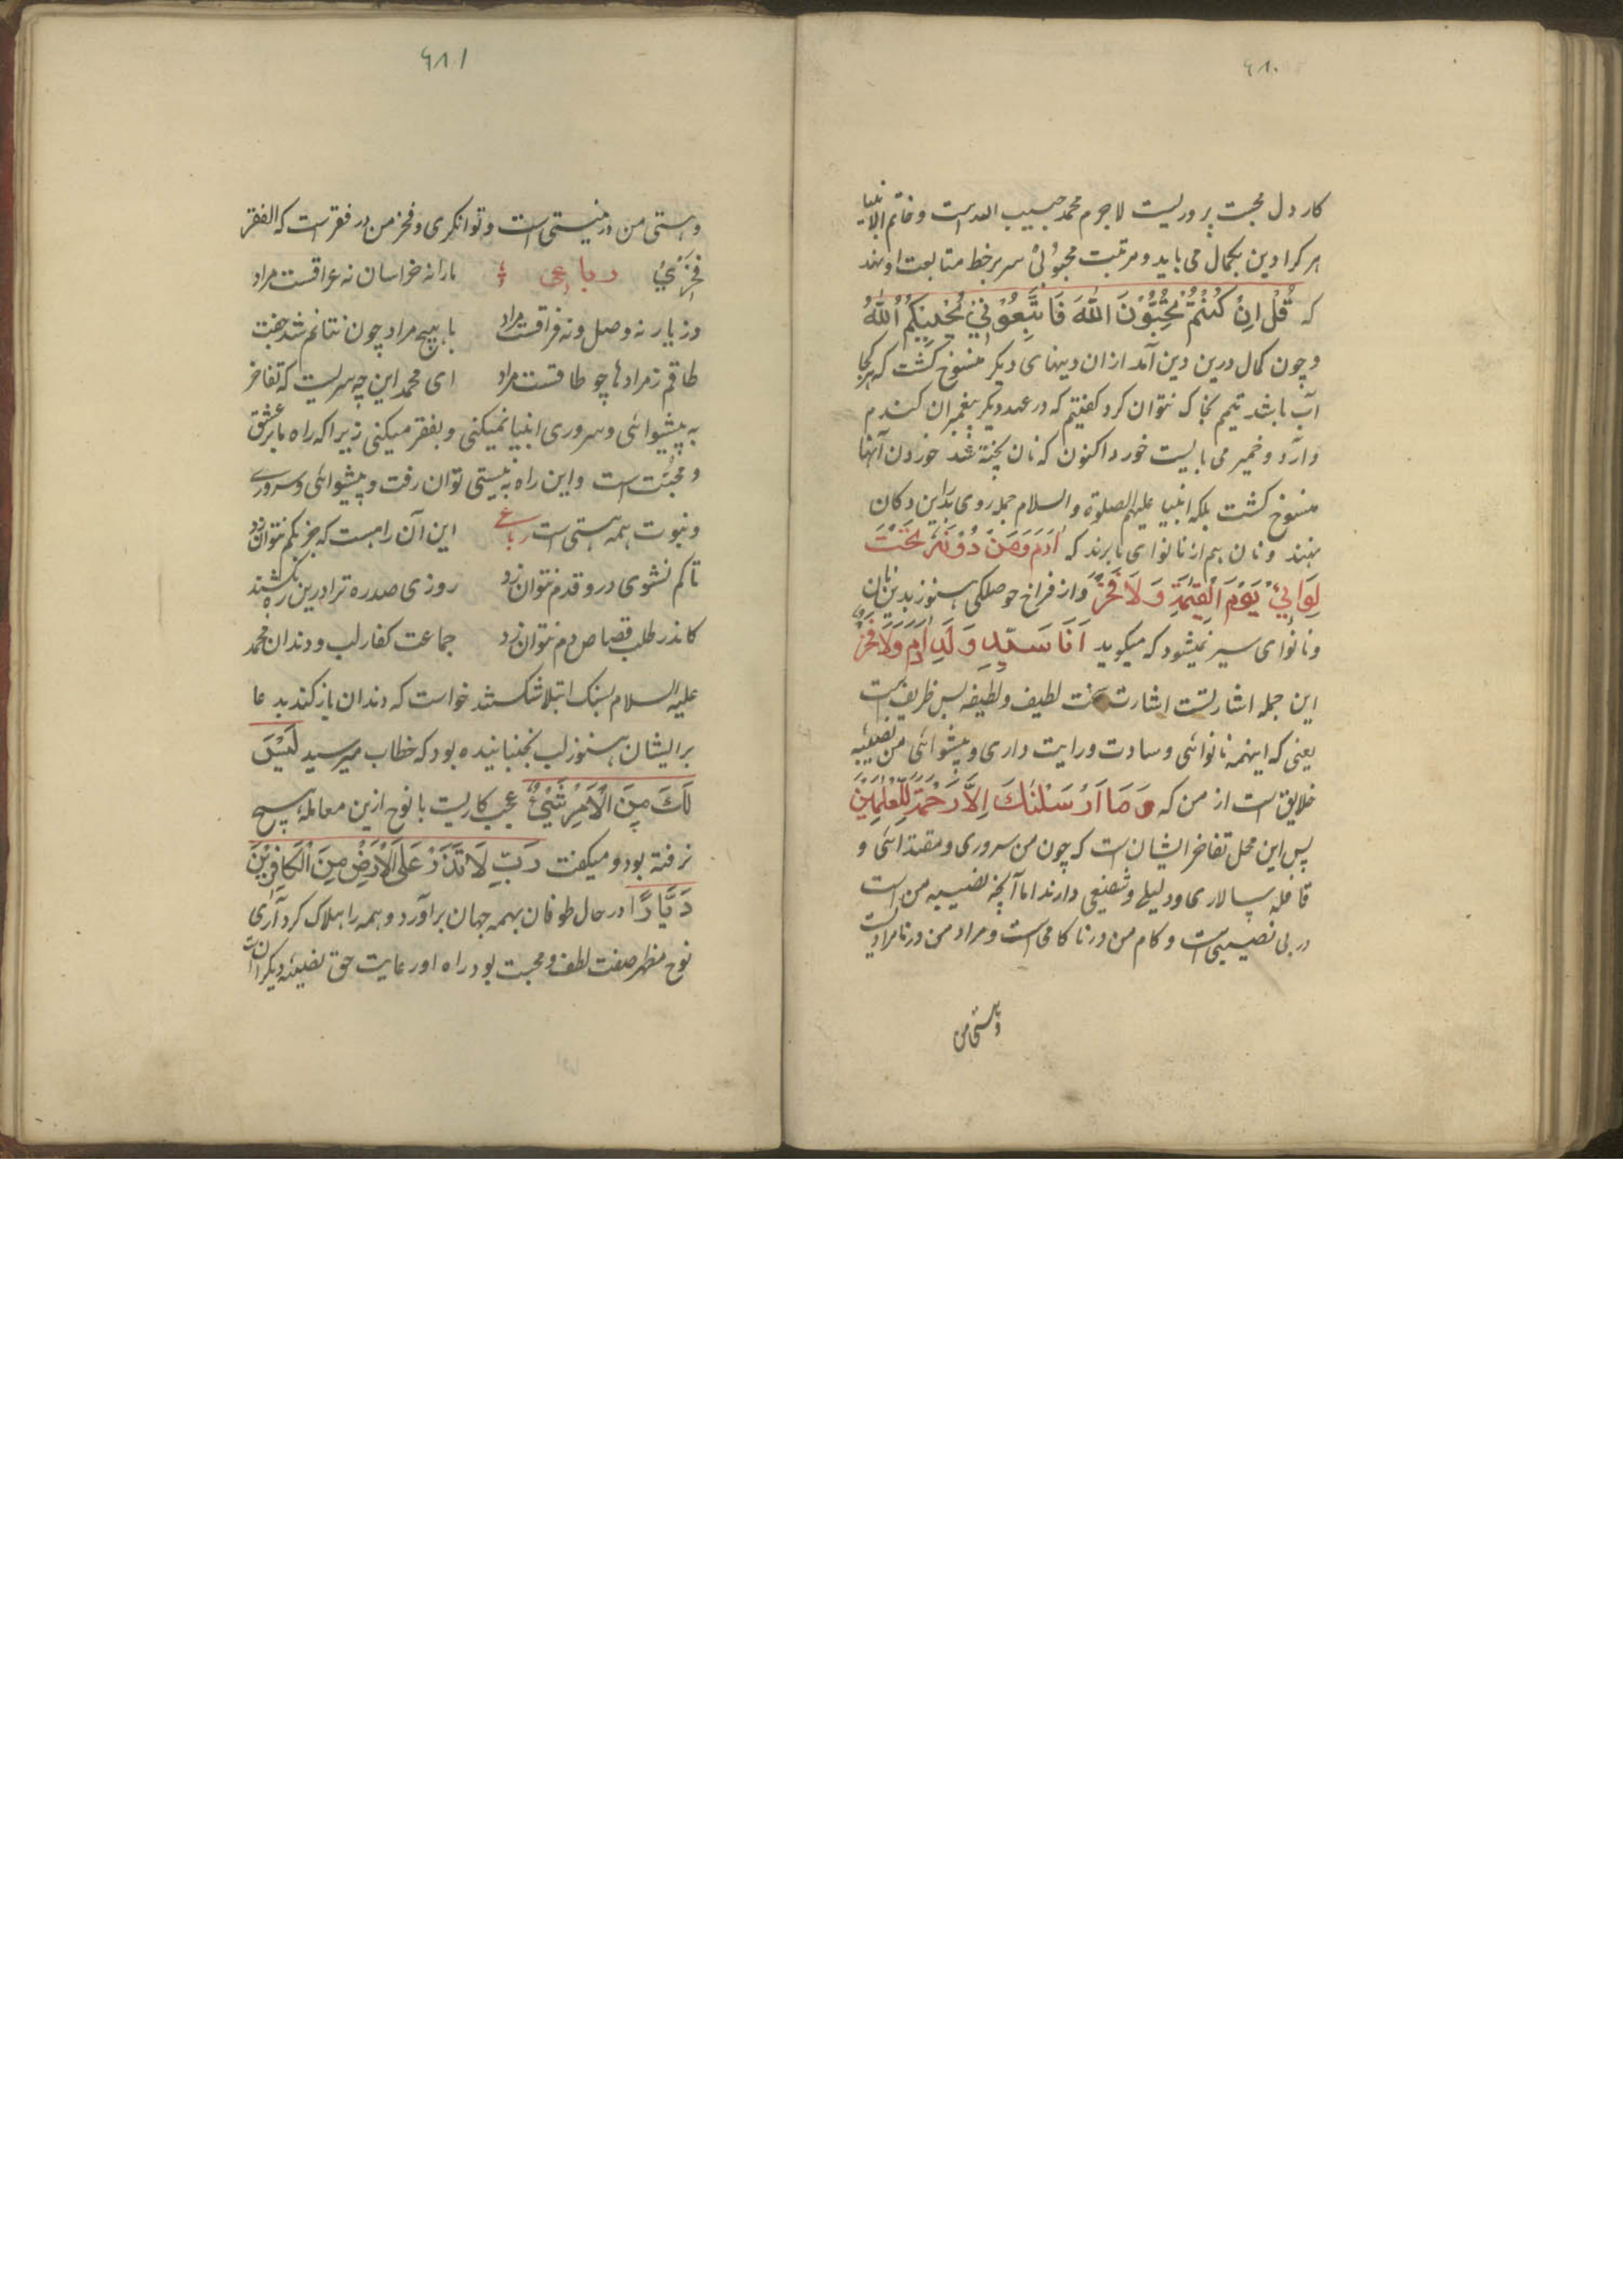 ۶۸۰
کار دل محبت پروریست لاجرم محمد حبیب الله است و خاتم الانبیا
هر کرا دین بکمال می باید و مرتبت محبوبی سر بر خط متابعت او نهد
که قُلْ اِنْ كُنْتُمْ تُحِبُّوْنَ اللّٰهَ فَاتَّبِعُوْنِيْ يُحْبِبْكُمُ اللّٰهُ
و چون کمال درین دین آمد از ان دینهای دیکر منسوخ کشت که هرکجا
آب باشد تیمم بخاک نتوان کرد کفتیم که در عهد دیکر پیغمبران کندم
و آرد و خمیر می بایست خورد اکنون که نان پخته شد خوردن آنها
منسوخ کشت بلکه انبیا علیهم الصلوة و السلام جمله روی بدین دکان
نهند و نان هم از نانوای ما برند که اٰدَمَ وَمَنْ دُوْنَهُ تَحْتَ
لِوَايِيْ يَوْمَ الْقِيٰمَةِ وَلَا فَخْرَ و از فراخ حوصلکی هنوز بدین نان
و نانوای سیر نمیشود که میکوید اَنَا سَيِّدُ وَلَدِ اٰدَمَ وَلَا فَخْرَ
این جمله اشارتست اشارت سخت لطیف و لطیفه بس ظریفست
یعنی که اینهمه نانوائی و سادت و رایت داری و پیشوائی من نصیبه
خلایق است از من که وَمَا اَرْسَلْنٰكَ اِلَّا رَحْمَةً لِّلْعٰلَمِيْنَ
پس این محل تفاخر ایشان است که چون من سروری و مقتدائی و
قافله سپالاری و دلیلی و شفیعی دارند اما آنچه نصیبه من است
در بی نصیبی است و کام من در ناکامی است و مراد من در نامرادیست
و هستی من
۶۸۱
و هستی من در نیستی است و توانکری و فخر من در فقر است که الفقر
فَخْرِيْ رباعی مارا نه خراسان نه عراقست مراد
وز یار نه وصل و نه فراقست مراد با هیچ مراد چون نتانم شد جفت
طاقم ز مرادها چو طاقست مراد ای محمد این چه سریست که تفاخر
به پیشوائی و سروری انبیا نمیکنی و بفقر میکنی زیرا که راه ما بر عشق
و محبت است و این راه به نیستی توان رفت و پیشوائی و سروری
و نبوت همه هستی است رباعی این آن راهست که جز بکم نتوان زد
تا کم نشوی درو قدم نتوان زد روزی صد ره ترا درین ره بکشند
کاندر طلب قصاص دم نتوان زد جماعت کفار لب و دندان محمد
علیه السلام بسنک ابتلا شکستند خواست که دندان باز کند بدعا
بر ایشان هنوز لب نجنبانیده بود که خطاب میرسید لَيْسَ
لَكَ مِنَ الْاَمْرِ شَيْءٌ عجب کاریست با نوح ازین معامله هیچ
نرفته بود و میکفت رَبِّ لَا تَذَرْ عَلَى الْاَرْضِ مِنَ الْكَافِرِيْنَ
دَيَّارًا در حال طوفان بهمه جهان برآورد و همه را هلاک کرد آری
نوح مظهر صفت لطف و محبت بود راه او رعایت حق نصیبه دیکران است